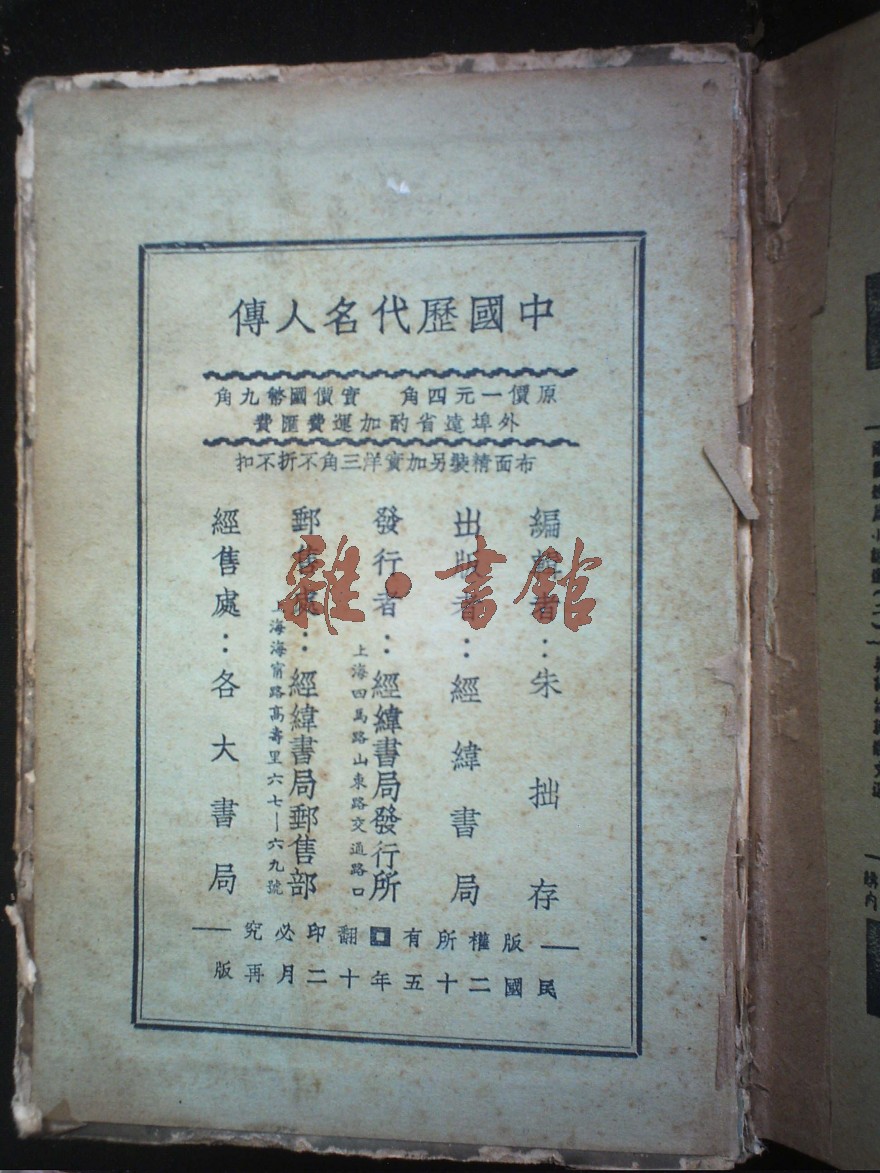 中國歷代名人傳
原價一元四角 實價國幣九角
外埠遠省酌加運費匯費
布面精裝另加實洋三角不折不扣
編輯者：朱拙存
出版者：經緯書局
發行者：經緯書局發行所
上海四馬路山東路交通路口
郵售處：經緯書局郵售部
上海海甯路高壽里六七－六九號
經售處：各大書局
版權所有翻印必究
民國二十五年十二月再版
雜·書館
購內